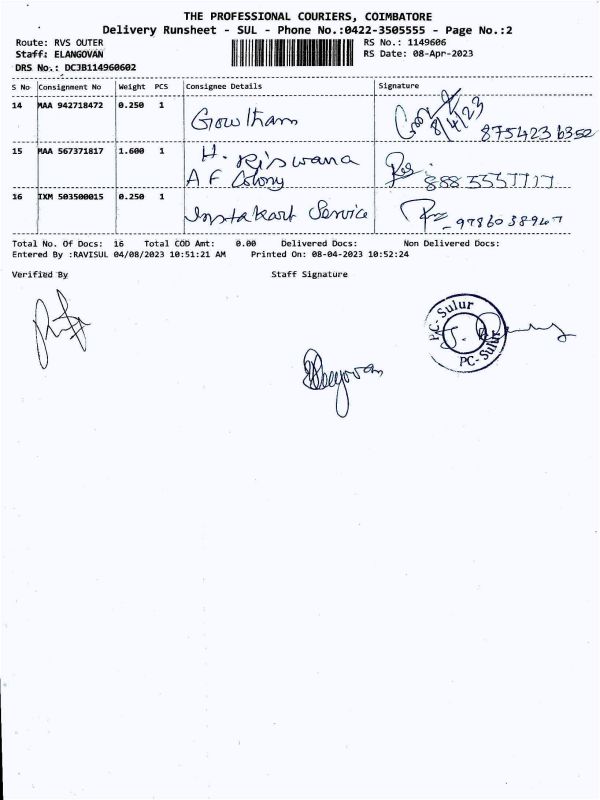 THE PROFESSIONAL COURIERS, COIMBATORE
Delivery Runsheet - SUL - Phone No.:0422-3505555 - Page No.:2
Route: RVS OUTER RS No.: 1149606
Staff: ELANGOVAN RS Date: 08-Apr-2023
DRS No.: DCJB114960602
S No Consignment No Weight PCS Consignee Details Signature
14 MAA 942718472 0.250 1 Gowtham 8/4/23
8754236352
15 MAA 567371817 1.600 1 H. Riswana
A F Colony
16 IXM 503500015 0.250 1 Instakart Service 9786038947
Total No. Of Docs: 16 Total COD Amt: 0.00 Delivered Docs: Non Delivered Docs:
Entered By :RAVISUL 04/08/2023 10:51:21 AM Printed On: 08-04-2023 10:52:24
Verified By Staff Signature
PC-Sulur
PC-Sulur
Elangovan